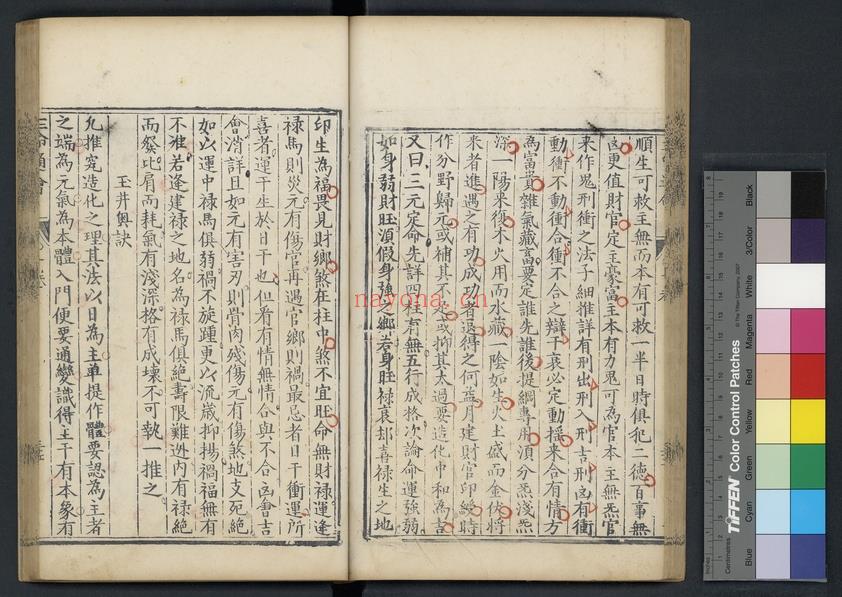 順生可救主無而本有可救一半日時俱犯二德百事無
凶更值財官定主豪富主本有力鬼可為官本主無炁官
來作鬼刑衝之法子細推詳有刑出刑入刑吉刑凶有衝
動衝不動衝合衝不合之辯干衰必定動搖來合有情方
為富貴雜氣藏畜要定誰先誰後提綱專用須分炁淺炁
深一陽來復木火用而水藏一陰如生火土盛而金伏將
來者進遇之有功成功者退得之何益月建財官印綬時
作分野歸元或補其不足或抑其太過要造化中和為吉
又曰三元定命先詳四柱有無五行成格次論命運強弱
如身弱財旺須假身強之鄉若身旺祿衰却喜祿生之地
印生為福畏見財鄉煞在柱中煞不宜旺命無財祿運逢
祿馬則災元有傷官再遇官鄉則禍最忌者日干衝運所
喜者運干生於日干也但看有情無情合與不合凶會吉
會消詳且如元有害刃則骨肉殘傷元有傷煞地支死絕
如以運中祿馬俱弱禍不旋踵更以流歲抑揚禍福無有
不准若逢建祿之地名為祿馬俱絕壽限難逃內有祿絕
而發比肩而耗氣有淺深格有成壞不可執一推之
玉井奧訣
凡推究造化之理其法以日為主單提作體要認為主者
之端為元氣為本體入門便要通變識得主干有本象有
三命通會
nayona.cn
TIFFEN Color Control Patches
© The Tiffen Company, 2007
Centimetres
Inches
Blue
Cyan
Green
Yellow
Red
Magenta
White
3/Color
Black